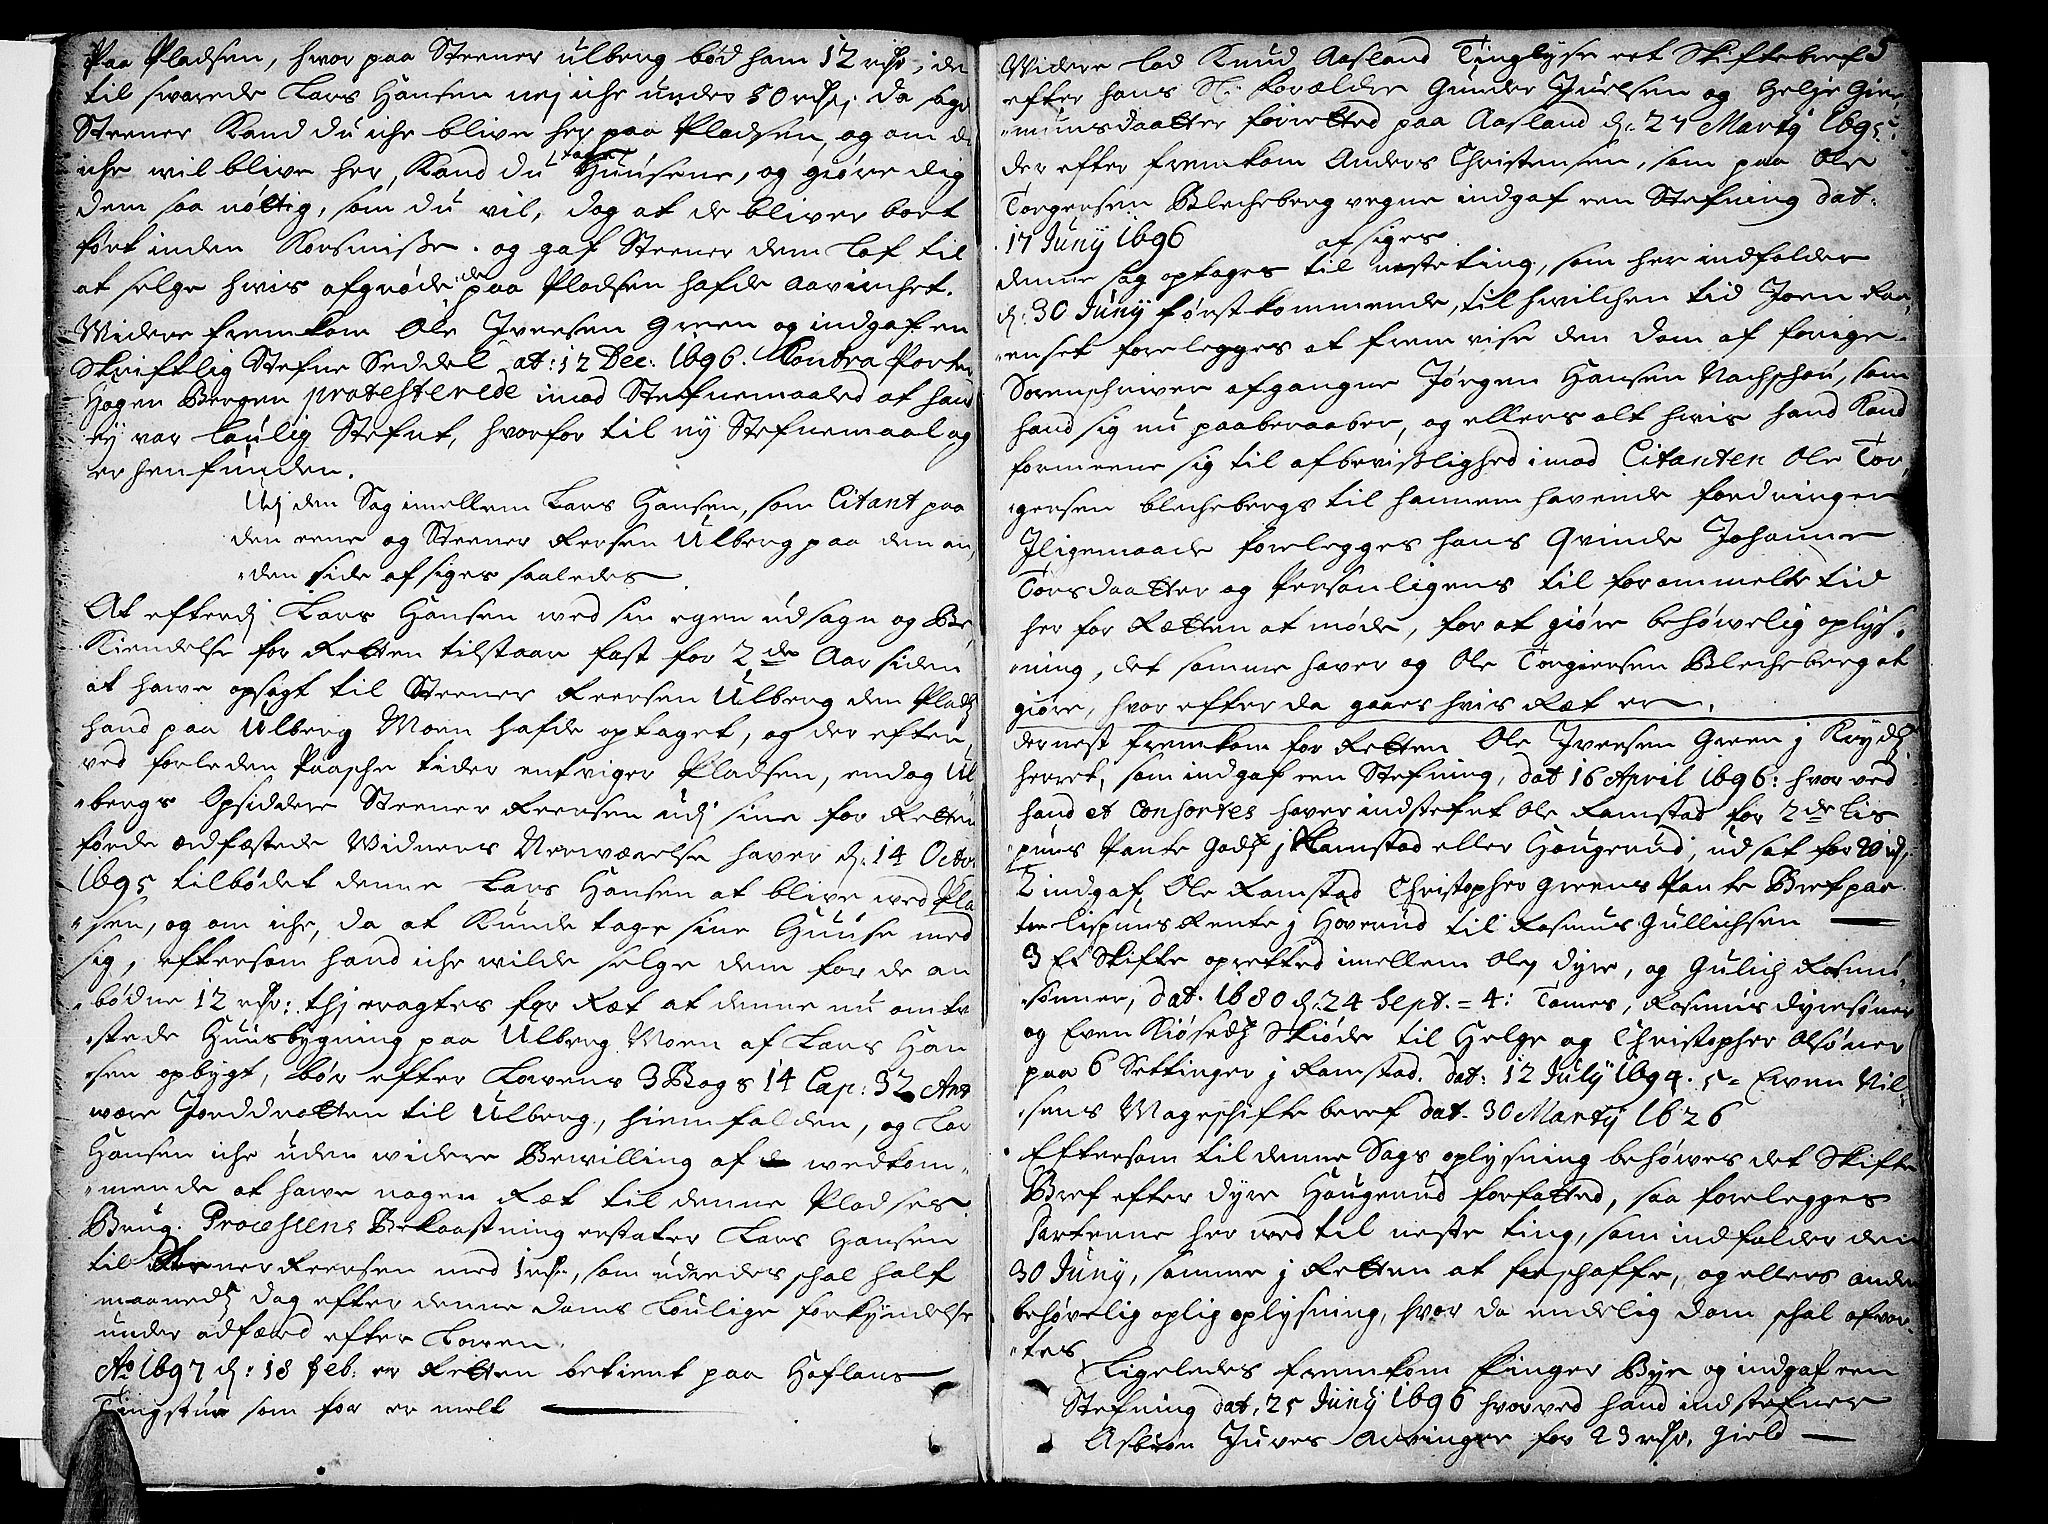 Paa Pladsen, hvor paa Steener Ulberg bød ham 12 rdr, der
til swarede Lars Hansen nej iche under 50 rdr; da sagde
Steener Kand du iche blive her paa Pladsen, og om du
iche wil blive her, Kand du tage Huusene, og giøre dig
dem saa nøttig, som du vil, dog at de bliver bort
ført inden Korsmisse. og gaf Steener dem Lof til
at selge hvis afgrøde de paa Pladsen hafde aavirchet.
Widere fremkom Ole Iversen Green og indgaf en
Skriftlig Stefne Seddel at: 12 Dec: 1696. Contra Parten
Hagen Bergen protesterede imod Stefnemaaled at hand
ej var Loulig Stefnt, hvorfor til ny Stefnemaal og
er henfunden.
Udj den Sag imellem Lars Hansen, som Citant paa
den eene og Steener Reersen Ulberg paa den an
den side afsiges saaledes
At efterdj Lars Hansen wed sin egen udsagn og Be
Kiendelse for Retten tilstaar fast for 2de Aar siden
at hawe opsagt til Steener Reersen Ulberg den Plads
hand paa Ulberg Moen hafde optaget, og der efter
ved forleden Paasche tider entviger Pladsen, endog Ul
bergs Opsiddere Steener Reersen udj sine for Retten
førde ædfæstede Widners Nerwærelse haver d: 14 Octobr
1695 tilbødet denne Lars Hansen at blive wed Pla
sen, og om iche, da at Kunde tage sine Huuse med
sig, eftersom hand iche wilde selge dem for de an
bødne 12 rdr: thj eragtes for Ræt at denne nu omtvi
stede Huusbygning paa Ulberg Moen af Lars Han
sen opbygt, bør efter Lovens 3 Bogs 14 Cap: 32 Art
være Jorddrotten til Ulberg, hiemfalden, og Lars
Hansen iche uden widere Bewilling af wedkom
mende at hawe nogen Ræt til denne Pladses
Brug. Processens Bekaastning erstater Lars Hansen
til Steener Reersen med 1 rdr, som udredes schal half
maaneds dag efter denne doms Loulige forkyndelse
under adfærd efter Loven.
Ao 1697 d: 18 Feb: er Retten betient paa Haflans
Tingstue som for er melt
Widere lod Knud Aasland Tinglyse eet Skiftebref 5
efter hans Sl: Forældre Gunder Juelsen og Helje Gier
munsdaatter forretted paa Aasland d: 27 Martij 1695
der efter fremkom Anders Christensen, som paa Ole
Torgersen Blecheberg vegne indgaf een Stefning dat.
17 Junij 1696 afsiges
denne sag optages til neste ting, som her indfalder
d: 30 Junij først kommende, til hwilchen tid Joen Raa
enset forelegges at fremvise den dom af forige
Sorenschriver afgangne Jørgen Hansen Nachschou, som
hand sig nu paaberaaber, og ellers alt hwis hand Kand
formeene sig til afbevislighed imod Citanten Ole Tor
gersen blechebergs til hannem havende fordringer
Iligemaade forelegges hans Qvinde Johanne
Torsdaatter og Persønligens til forommelte tid
her for Rætten at møde, for at giøre behøwelig oplys
ning, det samme haver og Ole Torgiersen Blecheberg at
giøre, hvor efter da gaaes hvis Ræt er.
dernest fremkom for Retten Ole Iversen Green j Kryds
herret, som indgaf een Stefning, dat 16 April 1696: hvor ved
hand et Consortes haver indstefnt Ole Ramstad for 2de Lis
puns Pante Gods j Ramstad eller Haugerud, udsat for 20 rd,
2 indgaf Ole Ramstad Christopher Greens Pante Bref paa
tre lispuns Rente j Hoverud til Rasmus Gullichsen
3 Et Skifte opretted imellem Ole, dyre, og Gulich Rasmu
sønner, dat. 1680 d: 24 Sept. = 4: Tomes, Rasmus dyresøner
og Even Kiøseds Skiøde til Helge og Christopher Olsøner
paa 6 Settinger j Ramstad. dat: 12 July 1694. 5= Ewen Nil
sens Mageschifte beref dat. 30 Martij 1626
Eftersom til denne Sags oplysning behøwes det Skifte
Bref efter dyre Haugerud forfatted, saa forelegges
Parterne her wed til neste ting, som indfalder den
30 Junij, samme j Retten at forschaffe, og ellers anden
behøvelig oplig oplysning, hvor da endelig dom schal afvar
tes
Ligeledes fremkom Finger Bye og indgaf een
Stefning dat. 25 Junij 1696 hvorved hand indstefner
Asbiørn Juves Arvinger for 23 rdr. Gield